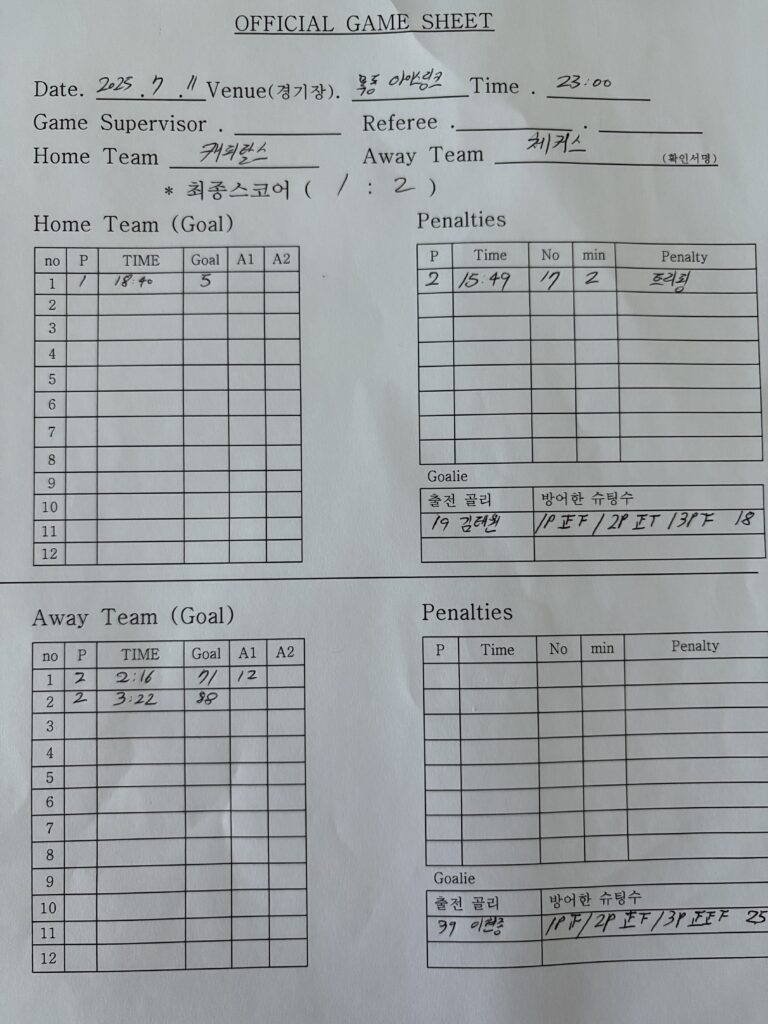 OFFICIAL GAME SHEET
Date. 2025 . 7 . 11 Venue(경기장). 목동 아이스링크 Time . 23:00
Game Supervisor . Referee . .
Home Team 캐피탈스 Away Team 체커스 (확인서명)
* 최종스코어 ( 1 : 2 )
Home Team (Goal)
no P TIME Goal A1 A2
1 1 18:40 5
2
3
4
5
6
7
8
9
10
11
12
Penalties
P Time No min Penalty
2 15:49 17 2 트리핑
Goalie
출전 골리 방어한 슈팅수
19 김태완 1P 正 / 2P 正 / 3P 18
Away Team (Goal)
no P TIME Goal A1 A2
1 2 2:16 71 12
2 2 3:22 88
3
4
5
6
7
8
9
10
11
12
Penalties
P Time No min Penalty
Goalie
출전 골리 방어한 슈팅수
39 1P / 2P 正 / 3P 正正 25